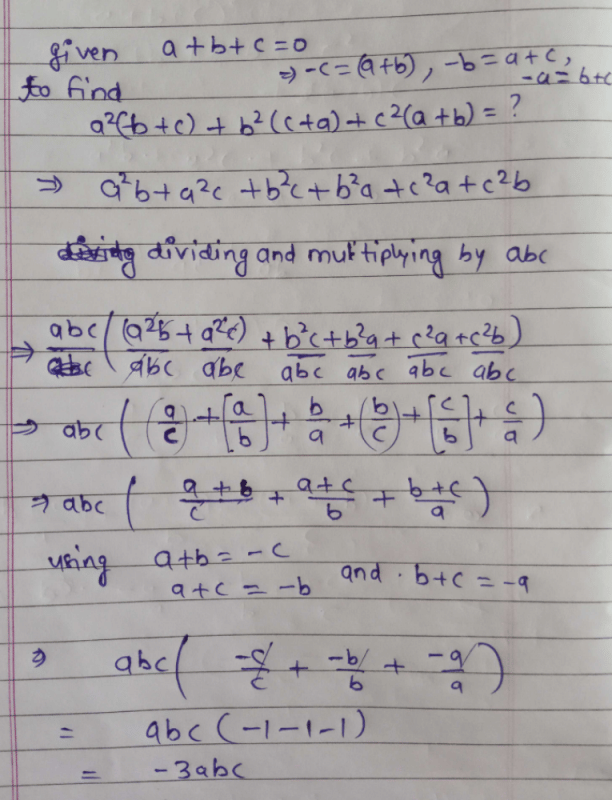 given a+b+c=0
⇒ -c=(a+b), -b=a+c,
-a=b+c
to find
a²(b+c) + b²(c+a) + c²(a+b) = ?
⇒ a²b+a²c+b²c+b²a+c²a+c²b
dividing and multiplying by abc
⇒ abc/abc ((a²b/abc + a²c/abc) + b²c/abc + b²a/abc + c²a/abc + c²b/abc)
⇒ abc ((a/c) + [a/b] + b/a + (b/c) + [c/b] + c/a)
⇒ abc ( a+b/c + a+c/b + b+c/a )
using a+b=-c
a+c = -b and b+c=-a
⇒ abc ( -c/c + -b/b + -a/a )
= abc (-1-1-1)
= -3abc